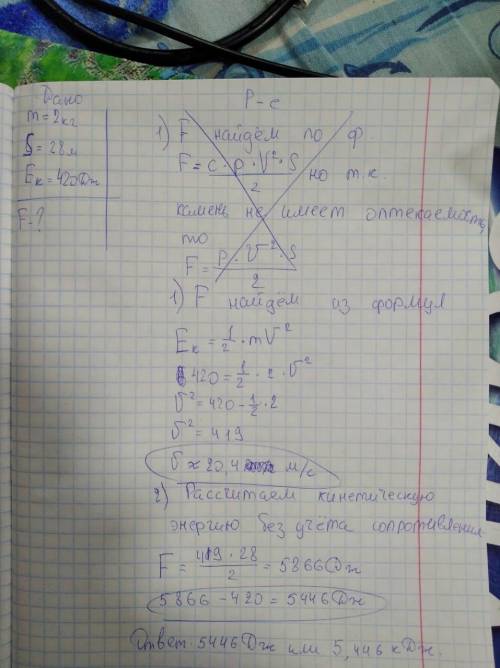 Дано
m = 2кг
S = 28м
Eк = 420Дж
F - ?
Р-е
1) F найдём по ф.
F = c · ρ · V² · S / 2 но т.к.
камень не имеет оптекаемость,
то
F = ρ · V² · S / 2
1) F найдём из формул
Eк = 1/2 · mV²
420 = 1/2 · 2 · V²
V² = 420 - 1/2 · 2
V² = 419
V ≈ 20,4 м/с
2) Рассчитаем кинетическую
энергию без учёта сопротивления
F = 419 · 28 / 2 = 5866Дж
5866 - 420 = 5446Дж
Ответ: 5446Дж или 5,446 кДж.